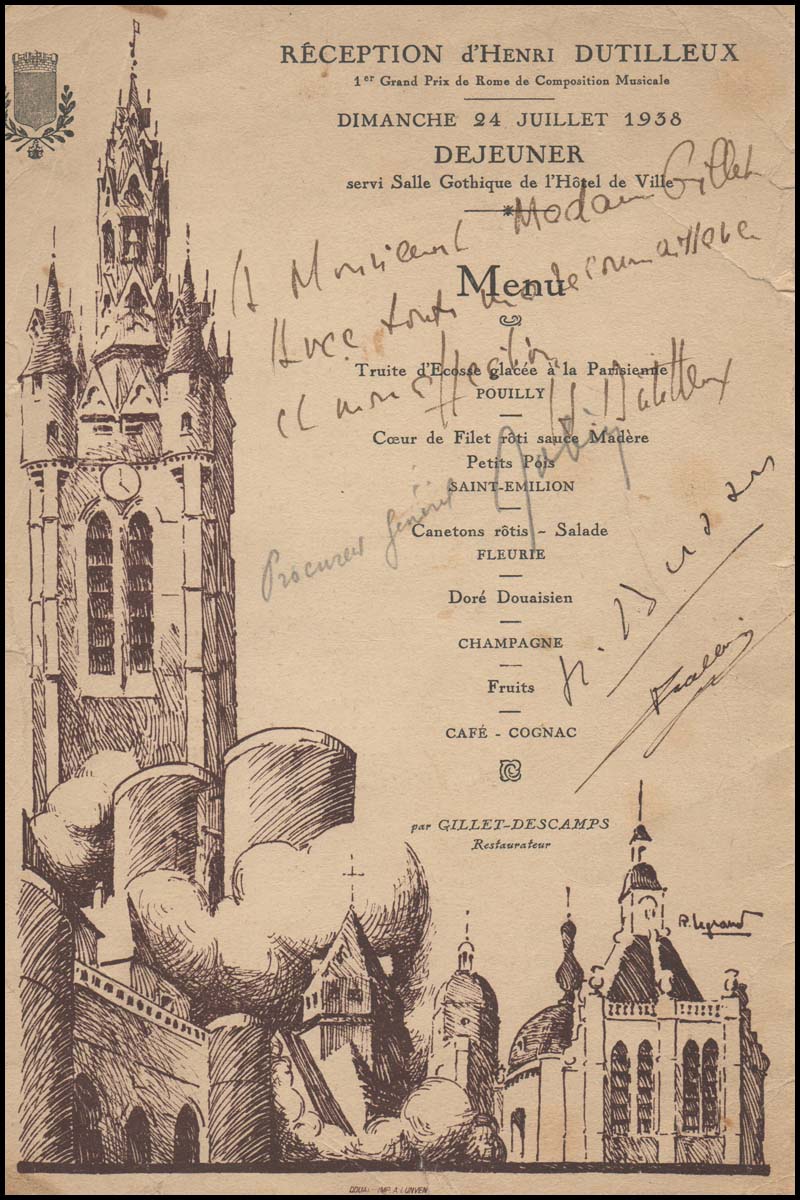 RÉCEPTION d'HENRI DUTILLEUX
1er Grand Prix de Rome de Composition Musicale
DIMANCHE 24 JUILLET 1938
DEJEUNER
servi Salle Gothique de l'Hôtel de Ville
A Monsieur Madame Gillet
Menu
Avec toute ma reconnaissance
Truite d'Ecosse glacée à la Parisienne
et mon affection
POUILLY
H. Dutilleux
Cœur de Filet rôti sauce Madère
Petits Pois
SAINT-EMILION
Procureur Général
Canetons rôtis - Salade
FLEURIE
Doré Douaisien
CHAMPAGNE
Fruits
CAFÉ - COGNAC
par GILLET-DESCAMPS
Restaurateur
R. Legrand
DOUAI - IMP. A. LUNVEN